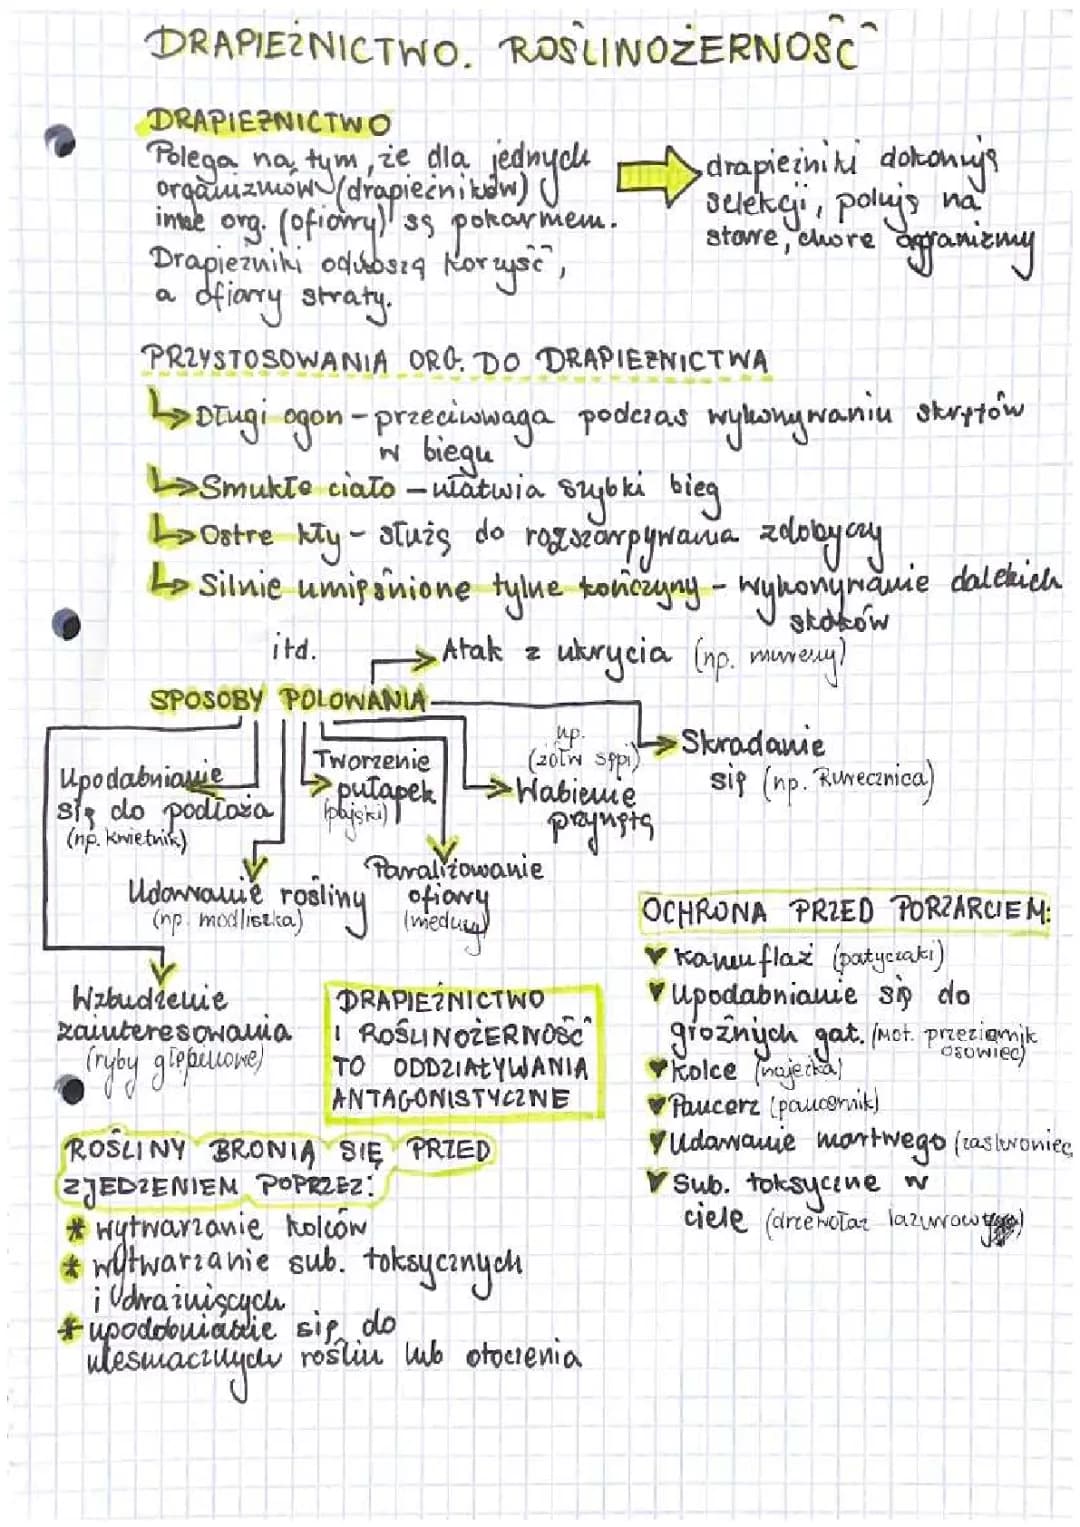 DRAPIEŻNICTWO. ROŚLINOŻERNOŚĆ
DRAPIEŻNICTWO
Polega na tym, że dla jednych
organizmów (drapieżników)
inne org. (ofiary) są pokarmem.
Drapieżniki odnoszą korzyść,
a ofiary straty.
drapieżniki dokonują
selekcji, polują na
stare, chore organizmy
PRZYSTOSOWANIA ORG. DO DRAPIEŻNICTWA
Długi ogon – przeciwwaga podczas wykonywaniu skrętów
w biegu
Smukłe ciało – ułatwia szybki bieg
Ostre kły – służą do rozszarpywania zdobyczy
Silnie umięśnione tylne kończyny – wykonywanie dalekich
skoków
itd.
Atak z ukrycia (np. mureny)
SPOSOBY POLOWANIA
Skradanie
się (np. Rurecznica)
np.
(żółw sępi)
Wabienie
przynętą
Tworzenie
pułapek
(pająki)
Upodabnianie
się do podłoża
(np. kwietnik)
Paraliżowanie
ofiary
(meduzy)
Udawanie rośliny
(np. modliszka)
Wzbudzenie
zainteresowania
(ryby głębinowe)
DRAPIEŻNICTWO
I ROŚLINOŻERNOŚĆ
TO ODDZIAŁYWANIA
ANTAGONISTYCZNE
OCHRONA PRZED PORZARCIEM:
Kamuflaż (patyczaki)
Upodabnianie się do
groźnych gat. (Mot. przeziernik
osowiec)
Kolce (najeżka)
Pancerz (pancernik)
Udawanie martwego (zaskroniec
Sub. toksyczne w
ciele (drzewołaz lazurowy)
ROŚLINY BRONIĄ SIĘ PRZED
ZJEDZENIEM POPRZEZ:
* wytwarzanie kolców
* wytwarzanie sub. toksycznych
i drażniących
* upodobnianie się do
niesmacznych roślin lub otoczenia